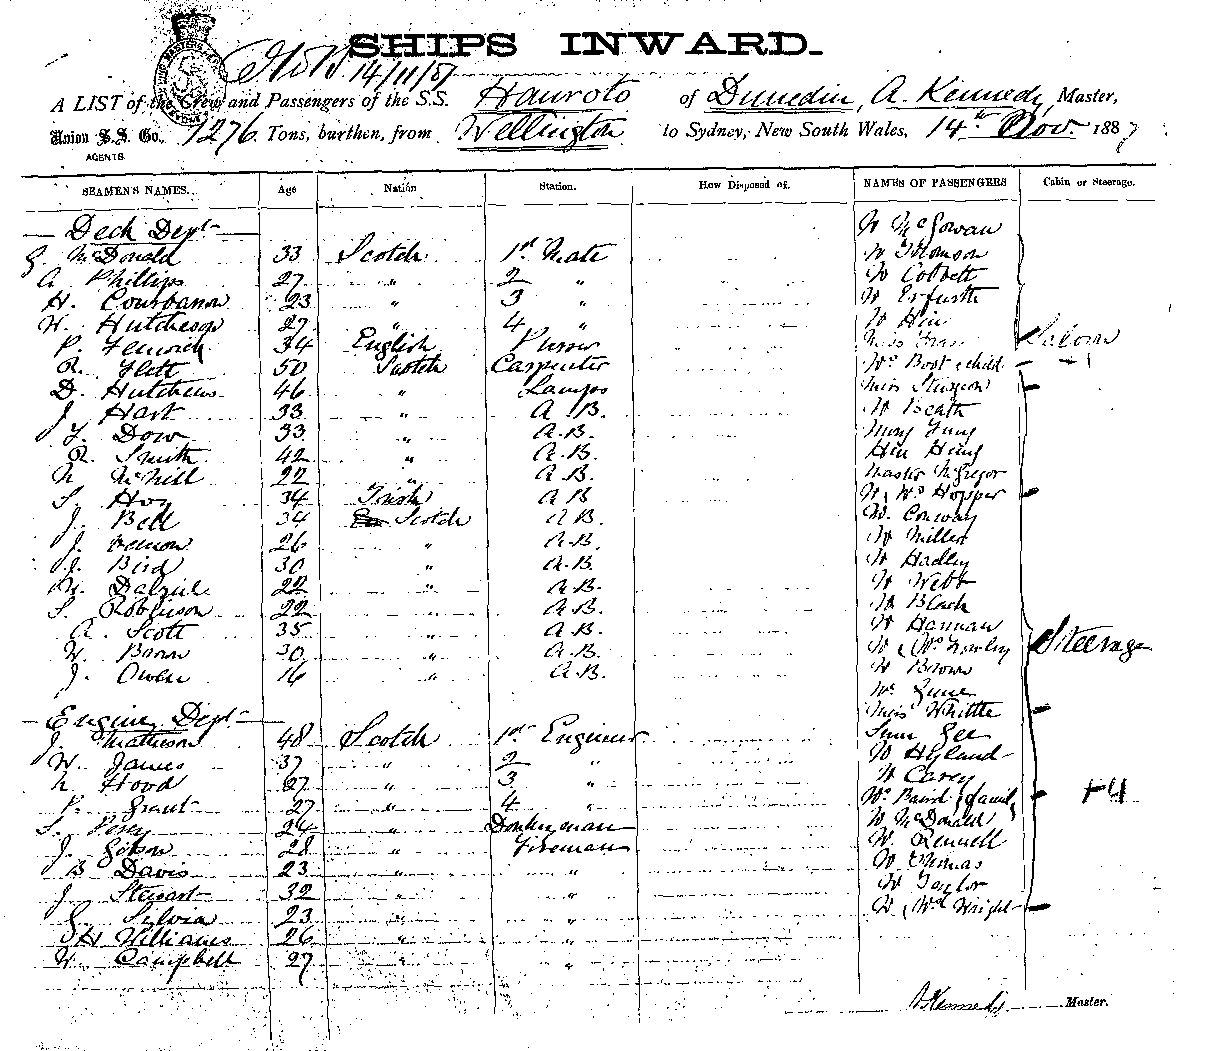 SHIPS INWARD.
14/11/87
A LIST of the Crew and Passengers of the S.S. Hauroto of Dunedin, A. Kennedy, Master,
Union S.S. Co., 1276 Tons, burthen, from Wellington to Sydney, New South Wales, 14th Nov. 1887
AGENTS.
SEAMEN'S NAMES. Age Nation Station. How Disposed of. NAMES OF PASSENGERS Cabin or Steerage.
Deck Dept Mr McGowan
G. McDonald 33 Scotch 1st Mate Mr Thomson
A Phillips 27 " 2 " Mr Cobbett
H. 23 " 3 " Mr
W. Hutcheson 27 " 4 " Mr
P. Fenwick 34 English Purser Miss Saloon
R. Flett 50 Scotch Carpenter Mrs Bost & child +1
D. Hutchins 46 " Lamps Miss Sturgeon
J. Hart 33 " A B. Mr Beath
Y. Dow 33 " A.B.
R. Smith 42 " A.B.
N McNeill 22 " A B. Master McGregor
S. Hoy 34 Irish A B Mr & Mrs Hopper
J. Bell 34 Scotch A B. Mr. Conway
J. 26 " A.B. Mr Miller
J. Bird 30 " A.B. Mr Hadley
M. Dalziel 22 " A.B. Mr Webb
S. Robinson 22 " A.B. Mr Black
A. Scott 35 " A.B. Mr Hannan
W. Bown 30 " A.B. Mr & Mrs Steerage
J. Owen 16 " A.B. Mr Brown
Mrs June
Engine Dept Miss Whittle
J. Matheson 48 Scotch 1st Engineer Sum Gee
W. James 37 " 2 " Mr Hyland
N Hood 27 " 3 " Mr Carey
P. Grant 27 " 4 " Mrs Baird & family +4
S. Percy 24 " Donkeyman Mr McDonald
J. Gibson 28 " Fireman Mr. Rennell
B Davis 23 " " Mr Thomas
J Stewart 32 " " Mr Taylor
G. Silvia 23 " " Mr & Mrs Wright
H Williams 26 " "
W. Campbell 27 " "
A Kennedy Master.